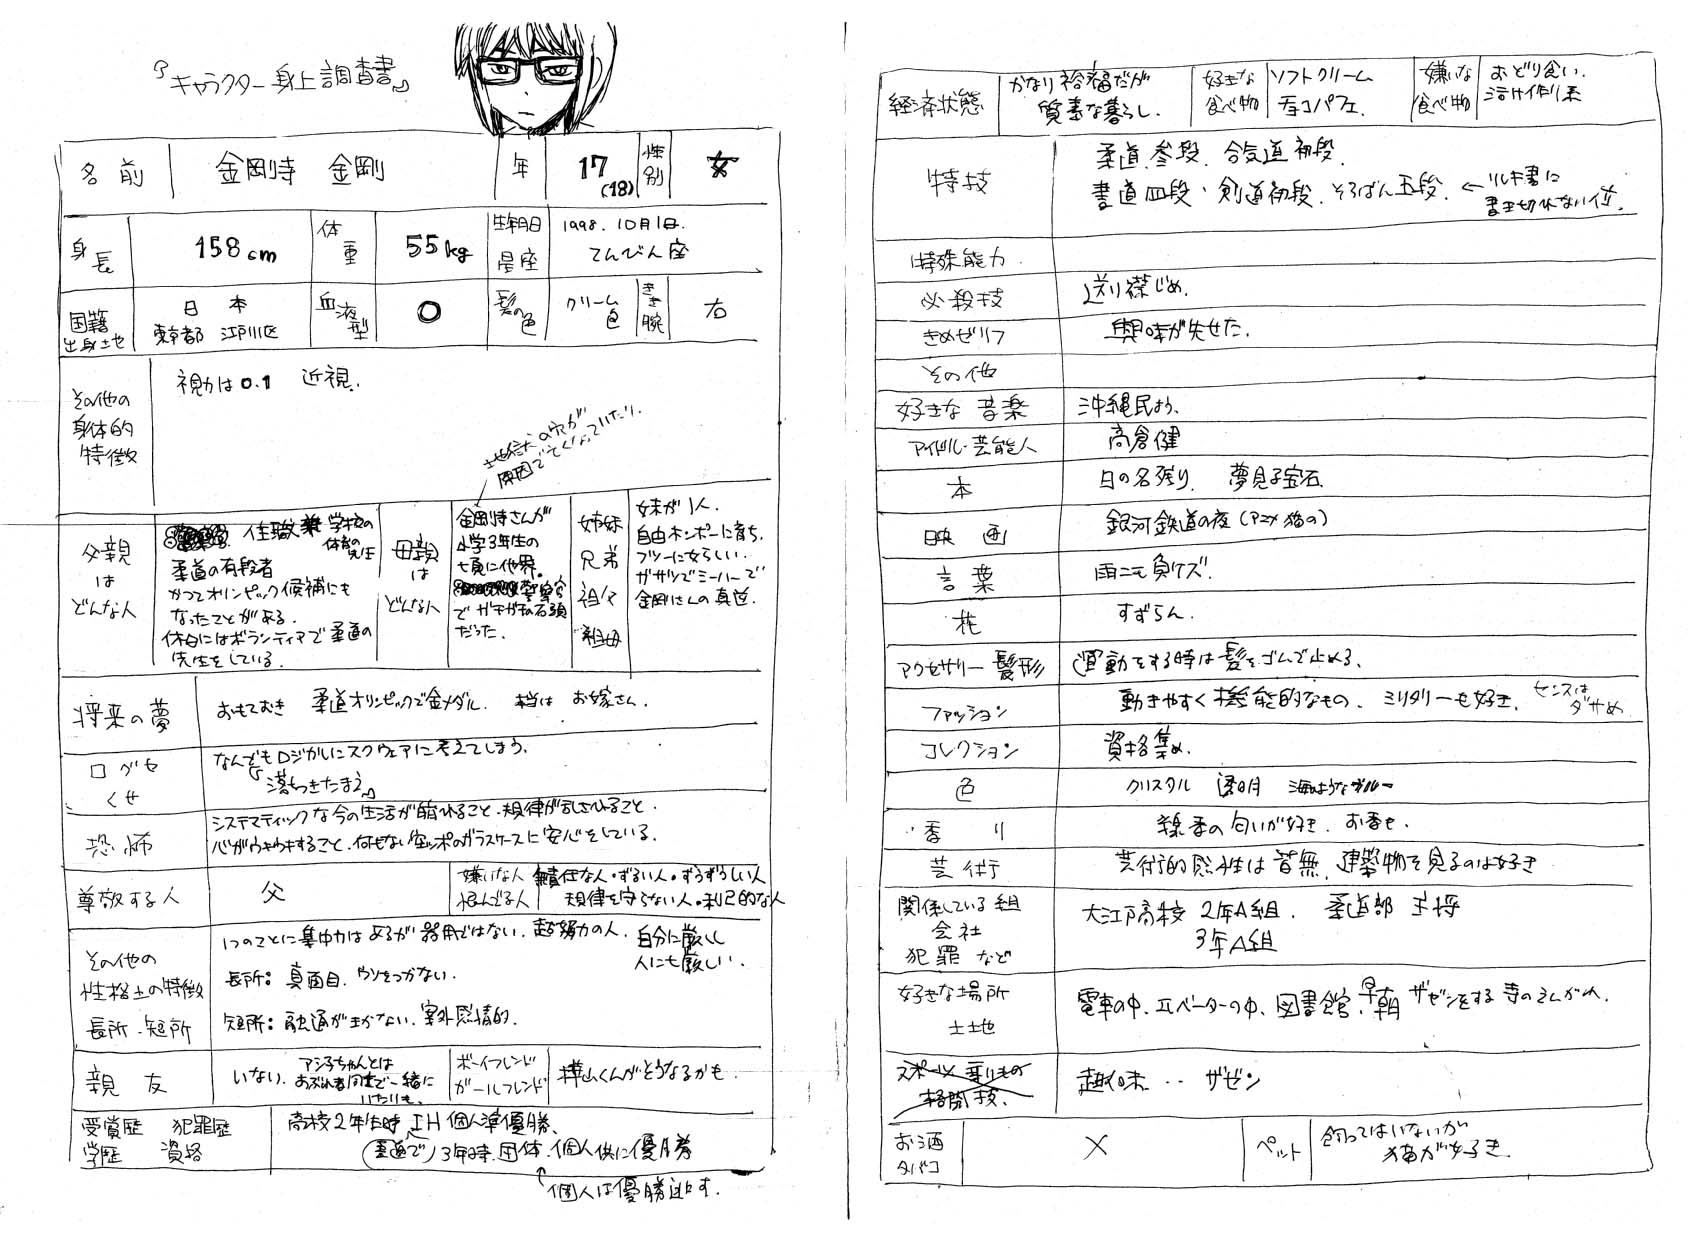 『キャラクター身上調査書』
名前 金剛寺 金剛 年 17 (18) 性別 女
身長 158cm 体重 55kg 生年月日 星座 1998.10月1日. てんびん座
国籍 出身土地 日本 東京都 江戸川区 血液型 O 髪の色 クリーム色 きき腕 右
その他の身体的特徴 視力は0.1 近視.
父親はどんな人
住職兼学校の体育の先生
柔道の有段者
かつてオリンピック候補にも
なったことがある.
休日にはボランティアで柔道の
先生をしている.
母親はどんな人
金剛寺さんが
小学3年生の
頃に他界.
警察官
でガチガチの石頭
だった.
原因で亡くなっていたり.
姉妹 兄弟 祖父 祖母
妹が1人.
自由ホンポーに育ち.
フツーに女らしい.
ガサツでミーハーで
金剛さんの真逆.
将来の夢 おもてむき 柔道オリンピックで金メダル. 本当は お嫁さん.
口グセ くせ
なんでもロジカルにスクウェアに考えてしまう.
『落ちつきたまえ』
恐怖
システマティックな今の生活が崩れること.規律が乱されること.
心がウキウキすること.何もない空ッポのガラスケースに安心をしている.
尊敬する人 父
嫌いな人 恨んでる人
無責任な人・ずるい人・ずうずうしい人
規律を守らない人・利己的な人
その他の性格上の特徴 長所・短所
1つのことに集中力はあるが器用ではない.超努力の人. 自分に厳しく
人にも厳しい.
長所:真面目.ウソをつかない.
短所:融通がきかない.案外感情的.
親友 いない. アジ子ちゃんとは あぶれ者同士で一緒に いたりも.
ボーイフレンド ガールフレンド 樺山くんがそうなるかも.
受賞歴 犯罪歴 学歴 資格
高校2年生時 IH 個人準優勝.
(柔道で) 3年時.団体.個人供に優勝
↑個人は優勝逃す.
経済状態 かなり裕福だが 質素な暮らし.
好きな食べ物 ソフトクリーム チョコパフェ.
嫌いな食べ物 おどり食い. 活け作り系
特技
柔道.参段.合気道初段.
書道四段・剣道初段.そろばん五段. ←リレキ書に
書き切れない位.
特殊能力
必殺技 送り襟じめ.
きめゼリフ 興味が失せた.
その他
好きな音楽 沖縄民よう.
アイドル・芸能人 高倉健
本 日の名残り. 夢見る宝石
映画 銀河鉄道の夜(アニメ猫の)
言葉 雨ニモ負ケズ.
花 すずらん.
アクセサリー 髪形 運動をする時は髪をゴムで止める.
ファッション 動きやすく機能的なもの. ミリタリーも好き. センスはダサめ
コレクション 資格集め.
色 クリスタル 透明 海のようなブルー
香り 線香の匂いが好き.お香も.
芸術 芸術的感性は皆無.建築物を見るのは好き
関係している組 会社 犯罪など
大江戸高校 2年A組. 柔道部 主将
3年A組
好きな場所 土地 電車の中.エレベーターの中.図書館.早朝ザゼンをする寺のえんがわ.
スポーツ 乗りもの 格闘技.
趣味‥ ザゼン
お酒 タバコ ×
ペット 飼ってはいないが 猫が好き.